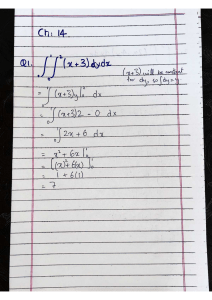 Ch: 14
Q1. ∫₀¹ ∫₀² (x+3) dy dx
(x+3) will be constant
for dy, so ∫dy = y
= ∫₀¹ (x+3)y |₀² dx
= ∫₀¹ (x+3)2 - 0 dx
= ∫₀¹ 2x + 6 dx
= x² + 6x |₀¹
= [(x)² + 6x) |₀¹
= 1 + 6(1)
= 7